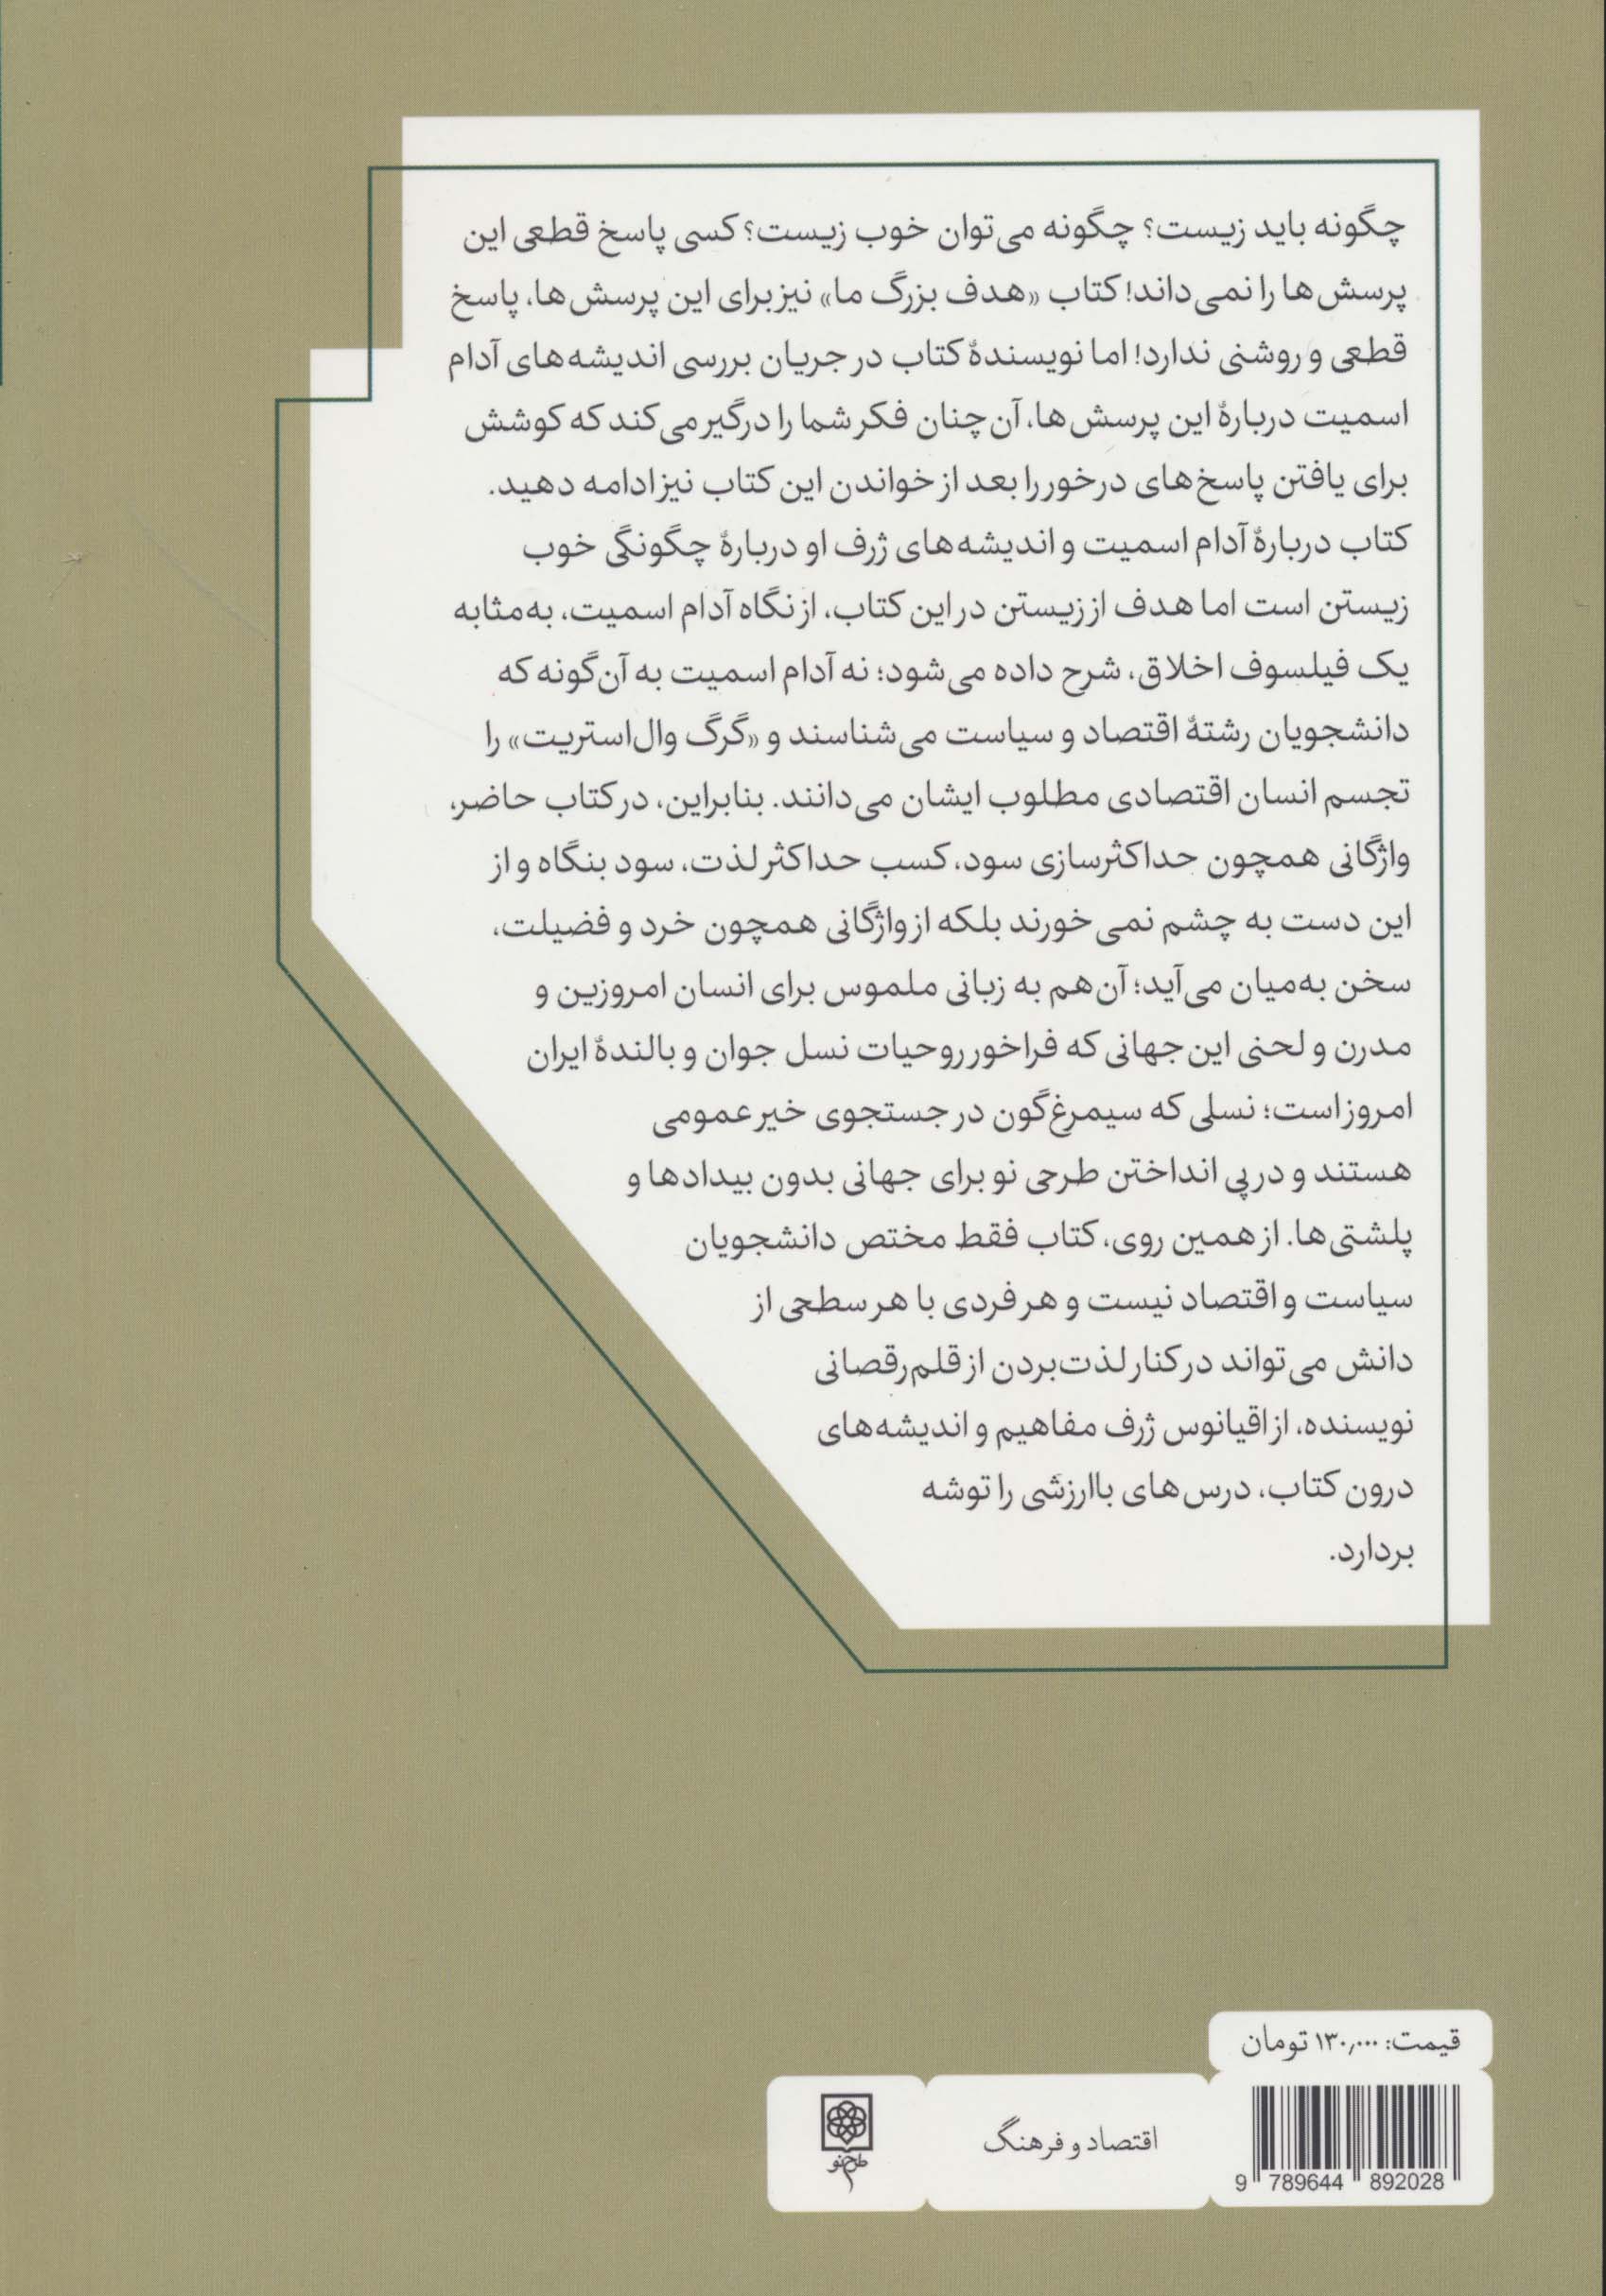 چگونه باید زیست؟ چگونه می‌توان خوب زیست؟ کسی پاسخ قطعی این
پرسش‌ها را نمی‌داند! کتاب «هدف بزرگ ما» نیز برای این پرسش‌ها، پاسخ
قطعی و روشنی ندارد! اما نویسندهٔ کتاب در جریان بررسی اندیشه‌های آدام
اسمیت دربارهٔ این پرسش‌ها، آن‌چنان فکر شما را درگیر می‌کند که کوشش
برای یافتن پاسخ‌های درخور را بعد از خواندن این کتاب نیز ادامه دهید.
کتاب دربارهٔ آدام اسمیت و اندیشه‌های ژرف او دربارهٔ چگونگی خوب
زیستن است اما هدف از زیستن در این کتاب، از نگاه آدام اسمیت، به‌مثابه
یک فیلسوف اخلاق، شرح داده می‌شود؛ نه آدام اسمیت به آن‌گونه که
دانشجویان رشتهٔ اقتصاد و سیاست می‌شناسند و «گرگ وال‌استریت» را
تجسم انسان اقتصادی مطلوب ایشان می‌دانند. بنابراین، در کتاب حاضر،
واژگانی همچون حداکثرسازی سود، کسب حداکثر لذت، سود بنگاه و از
این دست به چشم نمی‌خورند بلکه از واژگانی همچون خرد و فضیلت،
سخن به‌میان می‌آید؛ آن‌هم به زبانی ملموس برای انسان امروزین و
مدرن و لحنی این‌جهانی که فراخور روحیات نسل جوان و بالندهٔ ایران
امروز است؛ نسلی که سیمرغ‌گون در جستجوی خیر عمومی
هستند و در پی انداختن طرحی نو برای جهانی بدون بیدادها و
پلشتی‌ها. از همین روی، کتاب فقط مختص دانشجویان
سیاست و اقتصاد نیست و هر فردی با هر سطحی از
دانش می‌تواند در کنار لذت‌بردن از قلم‌رقصانی
نویسنده، از اقیانوس ژرف مفاهیم و اندیشه‌های
درون کتاب، درس‌های باارزشی را توشه
بردارد.
قیمت: ۱۳۰٫۰۰۰ تومان
9 789644 892028
اقتصاد و فرهنگ
طرح نو